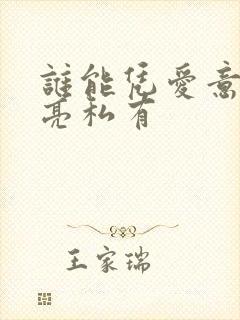 誰能凭愛意
亮私有
王家瑞